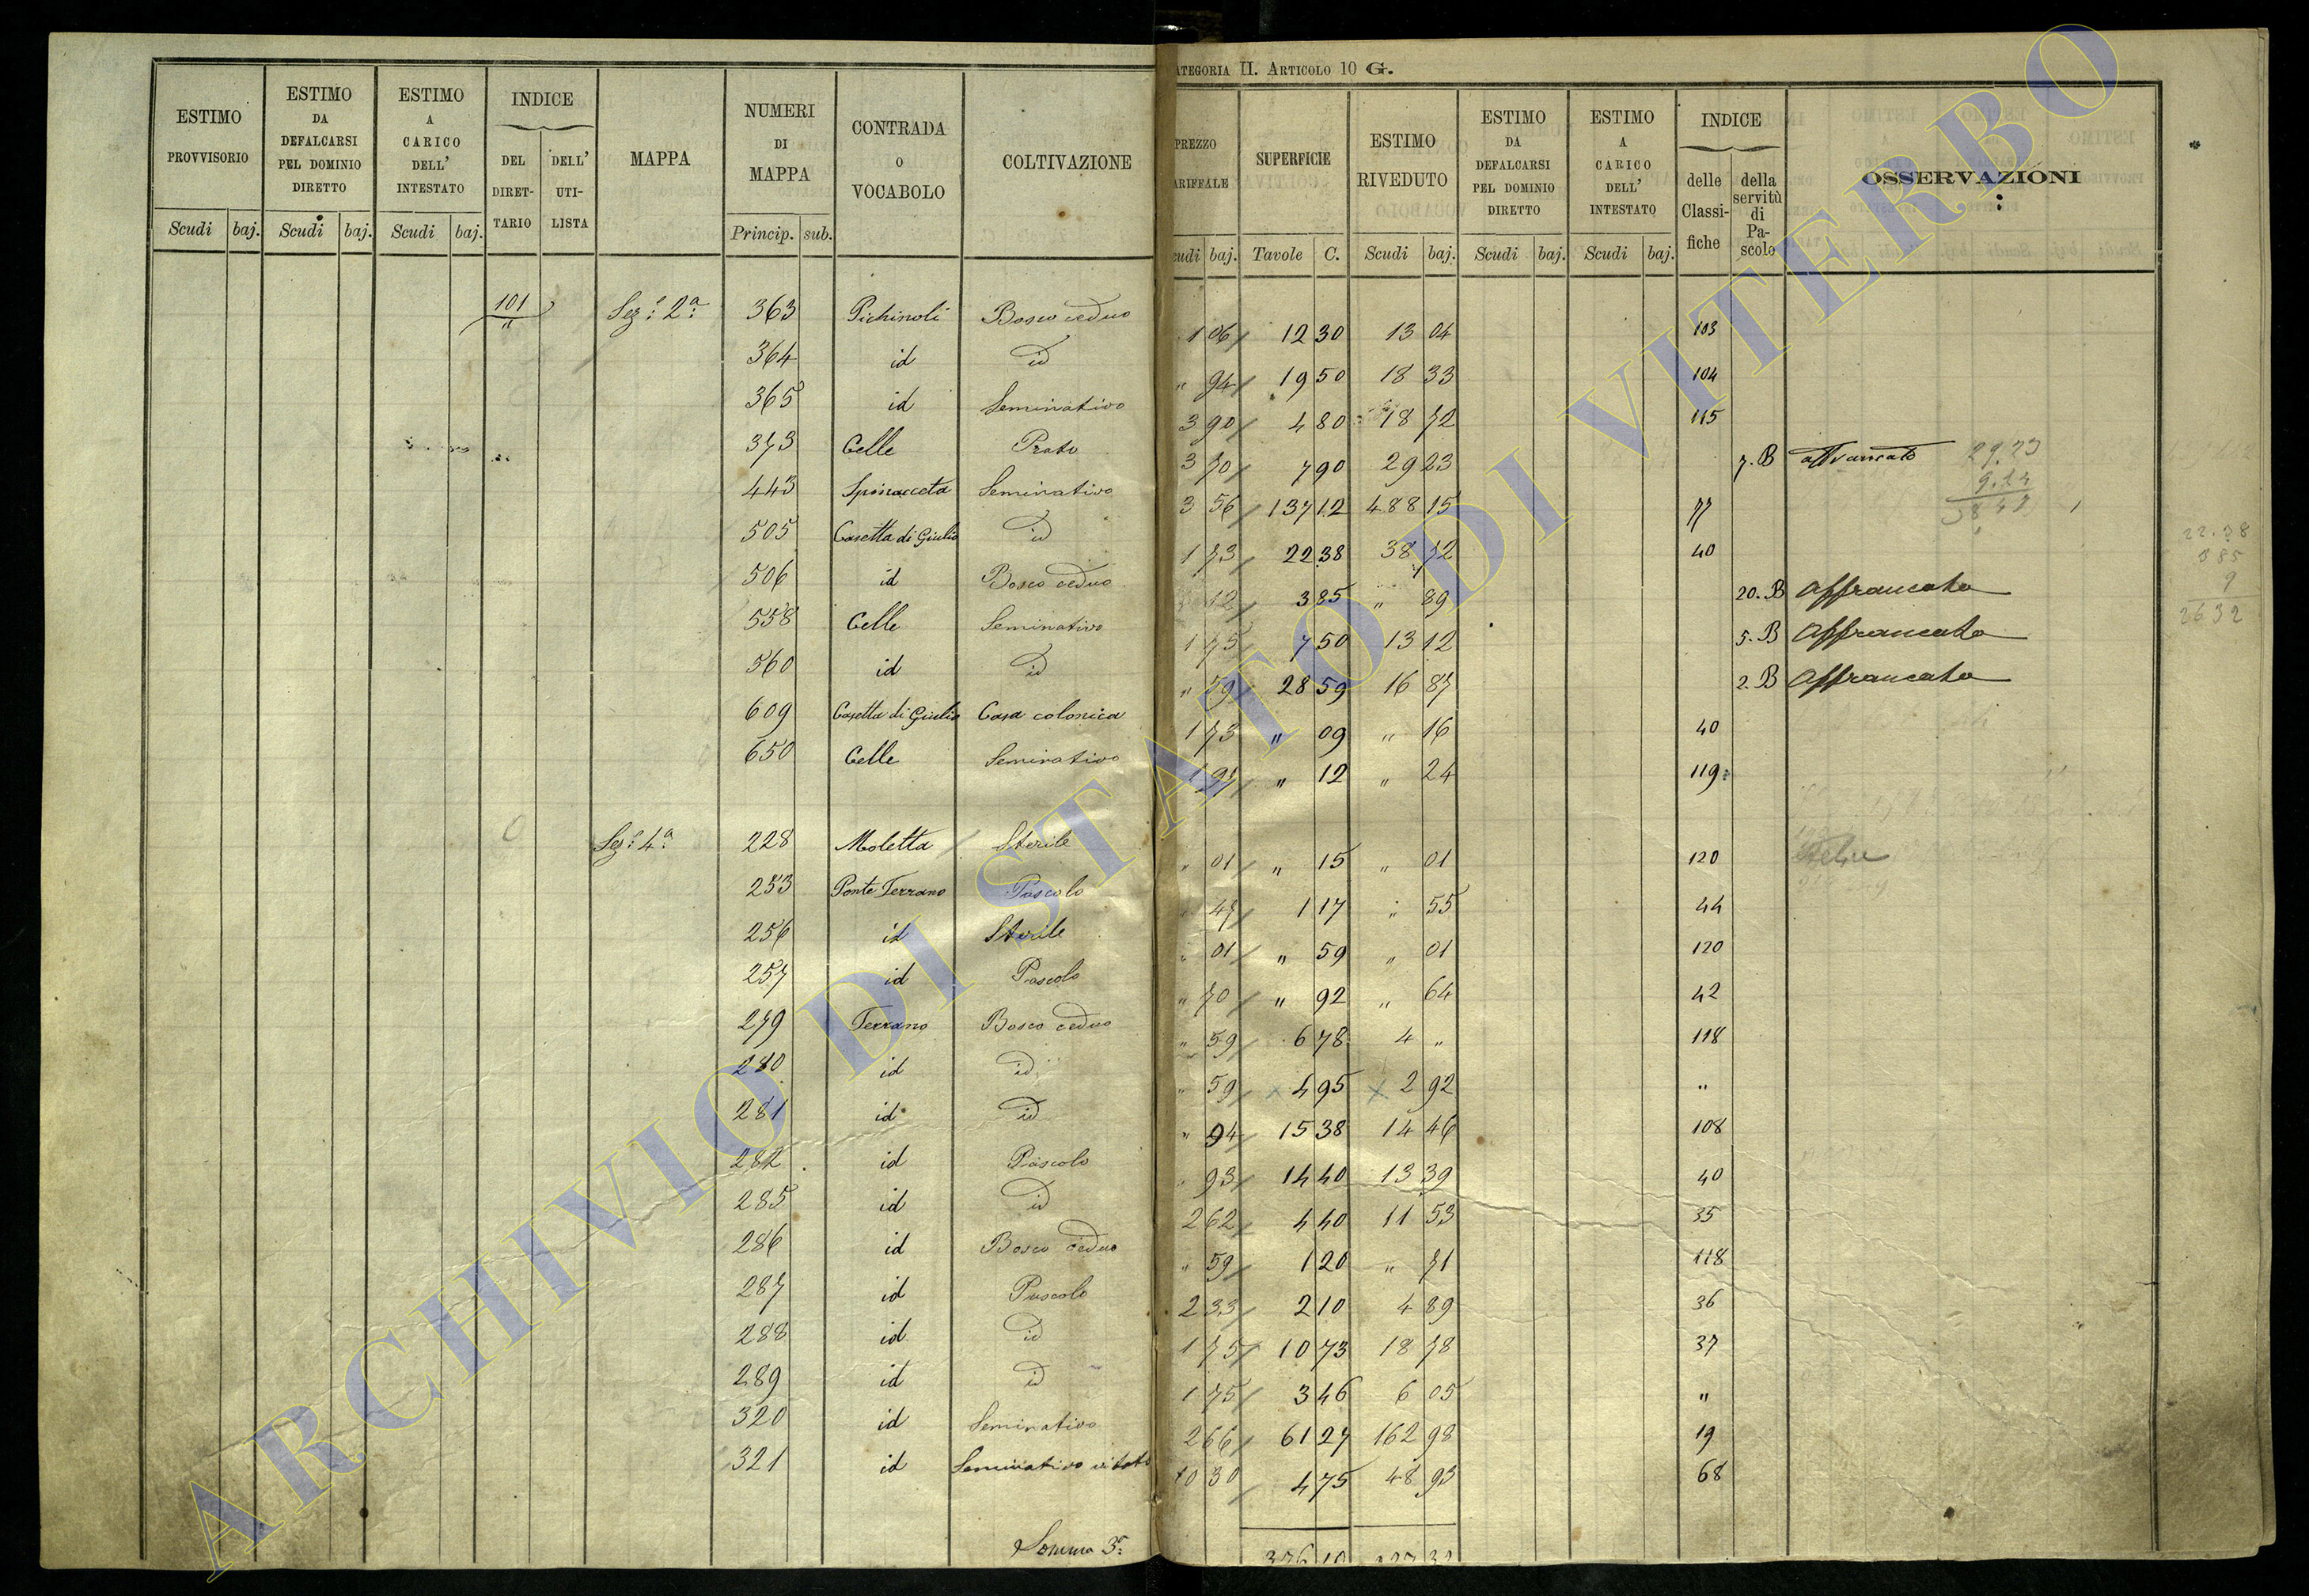 ATEGORIA II. ARTICOLO 10 G.
ESTIMO PROVVISORIO
ESTIMO DA DEFALCARSI PEL DOMINIO DIRETTO
ESTIMO A CARICO DELL' INTESTATO
INDICE
DEL DIRETTARIO
DELL' UTILISTA
MAPPA
NUMERI DI MAPPA
CONTRADA O VOCABOLO
COLTIVAZIONE
PREZZO
ARIFFALE
SUPERFICIE
ESTIMO RIVEDUTO
ESTIMO DA DEFALCARSI PEL DOMINIO DIRETTO
ESTIMO A CARICO DELL' INTESTATO
INDICE
delle Classifiche
della servitù di Pascolo
OSSERVAZIONI
Scudi baj. Scudi baj. Scudi baj. Princip. sub.
cudi baj. Tavole C. Scudi baj. Scudi baj. Scudi baj.
101 Sez: 2a: 363 Pichinoli Bosco ceduo 1 06 12 30 13 04 103
364 id id " 94 19 50 18 33 104
365 id Seminativo 3 90 4 80 18 72 115
373 Celle Prato 3 70 7 90 29 23 7. B 29.23
443 Spinacceta Seminativo 3 56 137 12 488 15 77
505 Casetta di Giulio id 1 73 22 38 38 72 40
506 id Bosco ceduo 12 3 85 " 89 20. B Affrancato
558 Celle Seminativo 1 75 7 50 13 12 5. B Affrancato
560 id id " 59 28 59 16 87 2. B Affrancato
609 Casetta di Giulio Casa colonica 1 73 " 09 " 16 40
650 Celle Seminativo 1 97 " 12 " 24 119
Sez: 4a: 228 Moletta Sterile " 01 " 15 " 01 120
253 Ponte Terrano Pascolo 47 1 17 " 55 44
256 id Sterile " 01 " 59 " 01 120
257 id Pascolo " 70 " 92 " 64 42
279 Terrano Bosco ceduo " 59 6 78 4 " 118
280 id id " 59 4 95 2 92 "
281 id id " 94 15 38 14 46 108
282 id Pascolo " 93 14 40 13 39 40
285 id id 2 62 4 40 11 53 35
286 id Bosco ceduo " 59 1 20 " 71 118
287 id Pascolo 2 33 2 10 4 89 36
288 id id 1 75 10 73 18 78 37
289 id id 1 75 3 46 6 05 "
320 id Seminativo 2 66 61 27 162 98 19
321 id Seminativo vitato 10 30 4 75 48 93 68
Somma 3a:
22.38
385
9
2632
ARCHIVIO DI STATO DI VITERBO